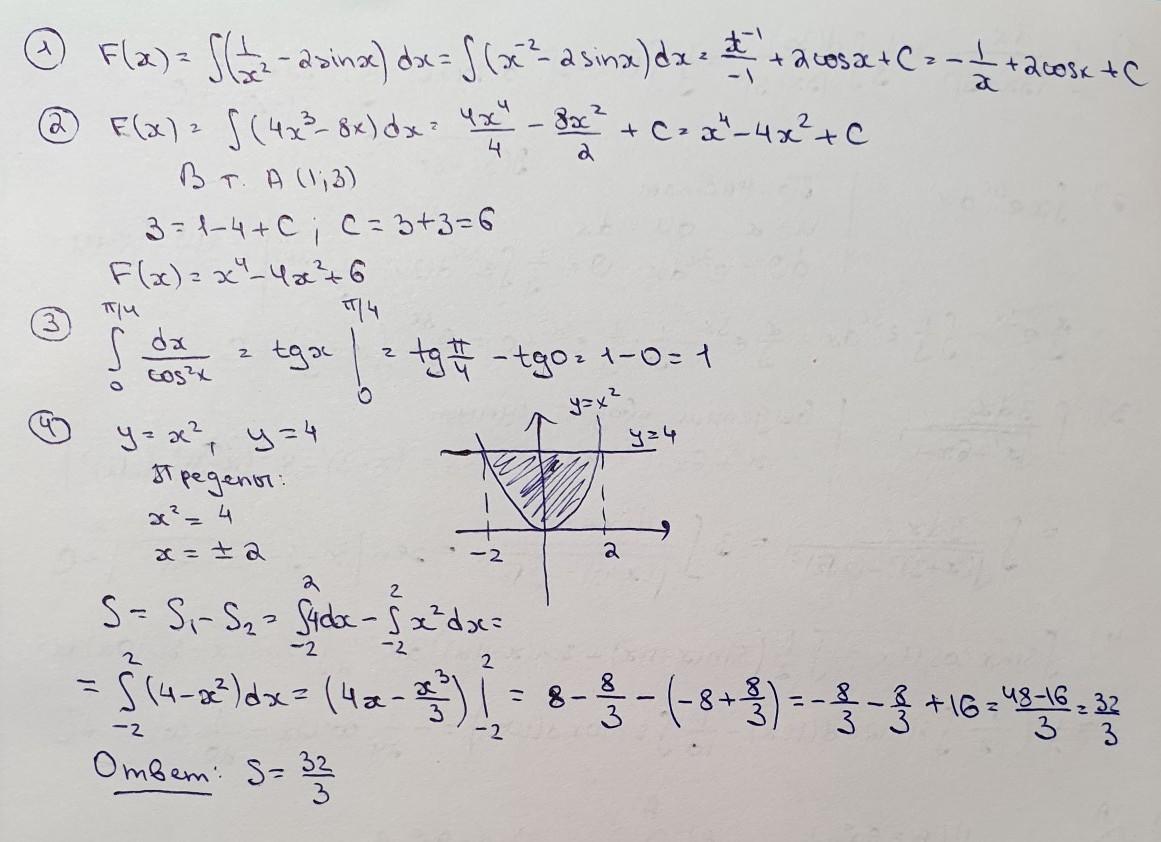 ① F(x) = ∫(1/x² - 2sinx) dx = ∫(x⁻² - 2sinx) dx = x⁻¹/-1 + 2cosx + C = -1/x + 2cosx + C
② F(x) = ∫(4x³ - 8x) dx = 4x⁴/4 - 8x²/2 + C = x⁴ - 4x² + C
В т. A (1;3)
3 = 1 - 4 + C ; C = 3 + 3 = 6
F(x) = x⁴ - 4x² + 6
③ ∫₀^(π/4) dx/cos²x = tgx |₀^(π/4) = tg π/4 - tg0 = 1 - 0 = 1
④ y = x², y = 4
Пределы:
x² = 4
x = ± 2
y = x²
y = 4
-2 2
S = S₁ - S₂ = ∫₋₂² 4dx - ∫₋₂² x² dx =
= ∫₋₂² (4 - x²) dx = (4x - x³/3) |₋₂² = 8 - 8/3 - (-8 + 8/3) = -8/3 - 8/3 + 16 = 48-16/3 = 32/3
Ответ: S = 32/3